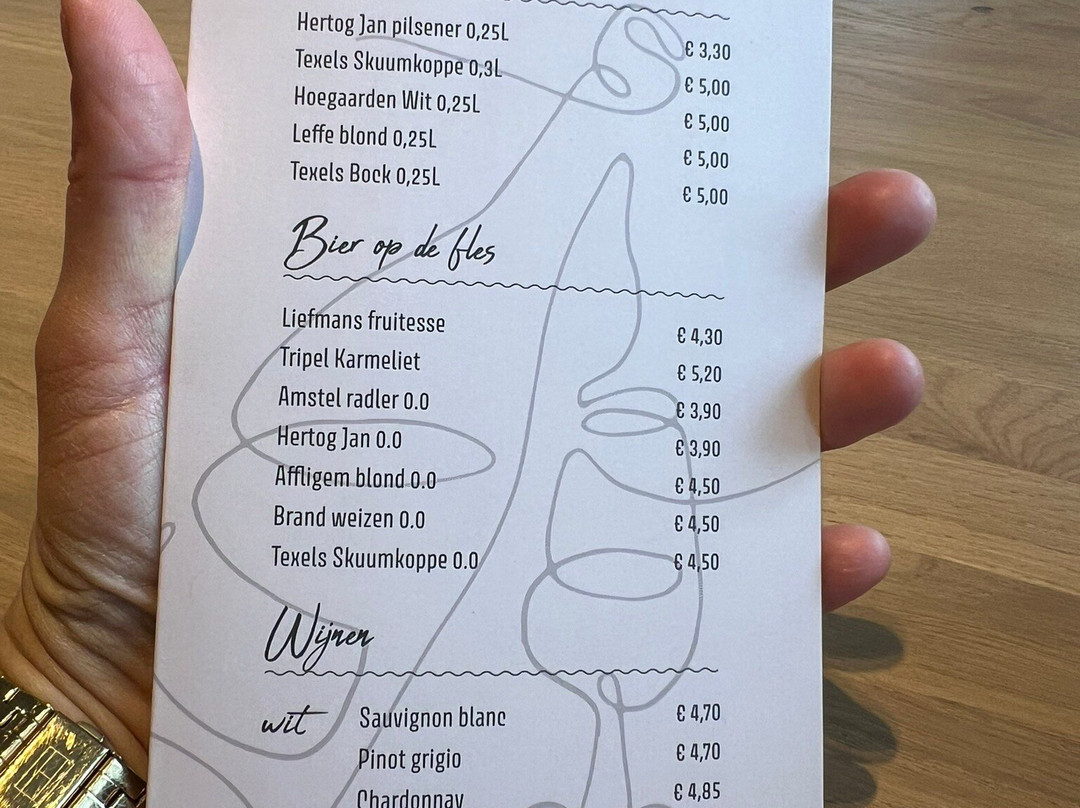 Hertog Jan pilsener 0,25L € 3,30
Texels Skuumkoppe 0,3L € 5,00
Hoegaarden Wit 0,25L € 5,00
Leffe blond 0,25L € 5,00
Texels Bock 0,25L € 5,00
Bier op de fles
Liefmans fruitesse € 4,30
Tripel Karmeliet € 5,20
Amstel radler 0.0 € 3,90
Hertog Jan 0.0 € 3,90
Affligem blond 0.0 € 4,50
Brand weizen 0.0 € 4,50
Texels Skuumkoppe 0.0 € 4,50
Wijnen
wit Sauvignon blanc € 4,70
Pinot grigio € 4,70
Chardonnay € 4,85